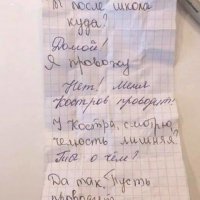 А после школа
куда?
Домой!
Я провожу
Нет! Меня
Костров проводит!
У Костра, смотрю,
челюсть лишняя?
Ты о чём?
Да так, Пусть
проводит